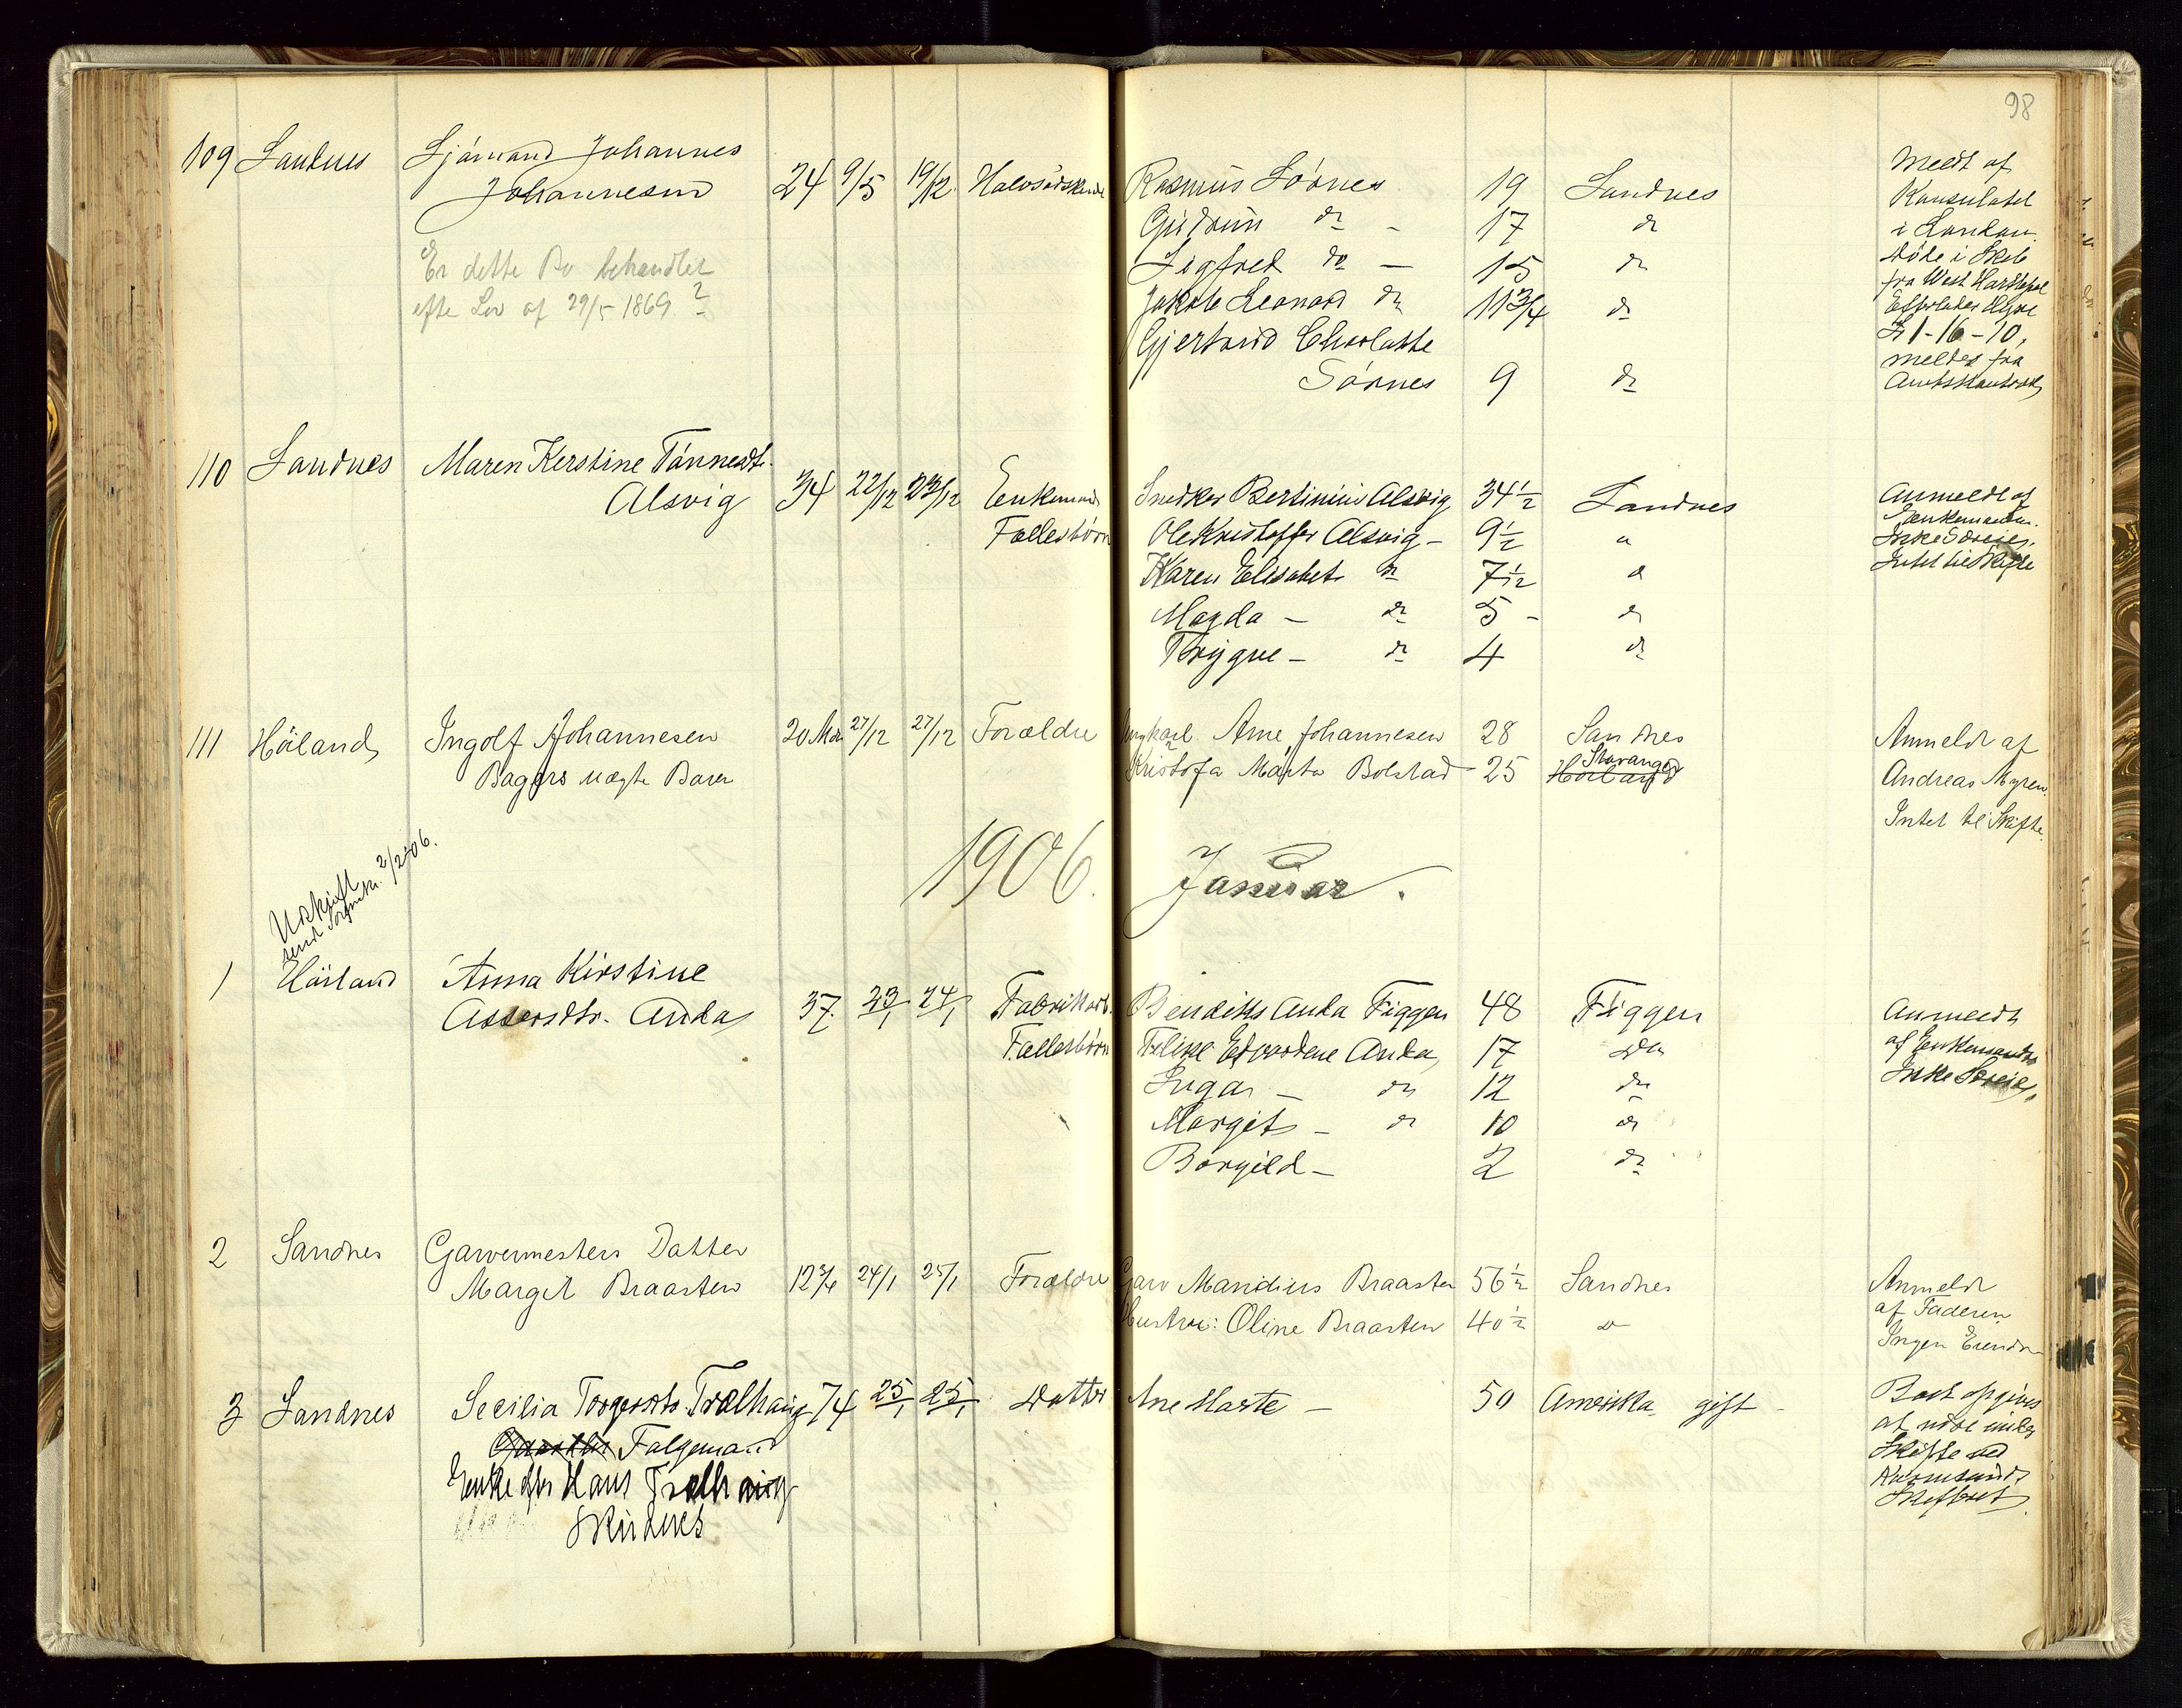 98
109 Sandnes Sjømand Johannes
Johannesen 24 9/5 19/12 Halvsødskende Rasmus Sørnes 19 Sandnes
Gudrun do - 17 do
Sigfred do - 15 do
Jakob Leonard do 11 3/4 do
Gjertrud Charlotte
Sørnes 9 do
Er dette Bo behandlet
efter Lov af 29/5 1869 ?
Meldt af
Konsulatet
i London.
Døde i Skib
fra West Hartlepool
Efterlader Hyre
£ 1-16-10,
meldes fra
Amtskontoret
110 Sandnes Maren Kerstine Tønnesdtr.
Alsvig 34 22/12 23/12 Enkemand Snedker Bertinius Alsvig 34 1/2 Sandnes
Fællesbørn Ole Kristoffer Alsvig - 9 1/2 "
Karen Elisabet do 7 1/2 d
Magda - do 5 - do
Trygve - do 4 do
Anmeldt af
Enkemanden.
Ikke Særeie,
Intet til Skifte
111 Høiland Ingolf Johannesen 20 Mdr 27/12 27/12 Forældre Ungkarl Arne Johannesen 28 Sandnes
Bagers uægte Barn Kristofa Marta Bolstad - 25 Høiland Stavanger
Anmeldt af
Andreas Myren.
Intet til Skifte.
1906. Januar.
Uskift
2/2-06.
1 Høiland Anna Kirstine
Assersdtr. Anda 37. 23/1 24/1 Fabrikarb. Bendiks Anda Figgen 48 Figgen
Fællesbørn Edvardine Anda 17 do
Inga - do 12 do
Margit - do 10 do
Borgild - 2 do
Anmeldt
af Enkemanden
Ikke Særeie,
2 Sandnes Garvermesters Datter
Margit Braasten 12 3/4 24/1 25/1 Forældre Garv Mandius Braasten 56 1/2 Sandnes
Hustru: Oline Braasten 40 1/2 d
Anmeldt
af Faderen
Ingen Eiendom
3 Sandnes Secilia Torgersdtr. Tralhaug 74 25/1 25/1 Datter Ane Marte - 50 Amerika gift -
Følgemand
Enke efter Hans Tralhaug
Skudnes
Boet opgives
at være under
Skifte ved
Karmsunds
Skifteret